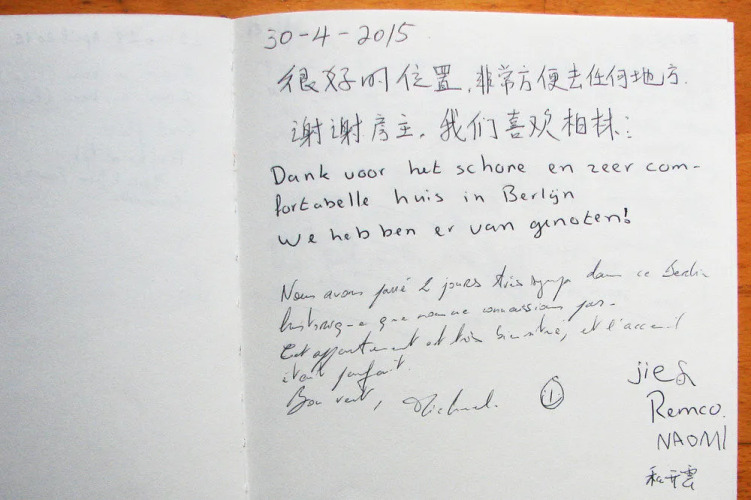 30-4-2015
很好的位置,非常方便去任何地方.
谢谢房主,我们喜欢柏林:
Dank voor het schone en zeer com-
fortabelle huis in Berlijn
We hebben er van genoten!
Nous avons passé 2 jours très sympa dans ce Berlin
historique que nous ne connaissions pas.
Cet appartement est très bien situé, et l'accueil
était parfait.
Bon vent, Michael.
1
jie &
Remco.
NAOMI